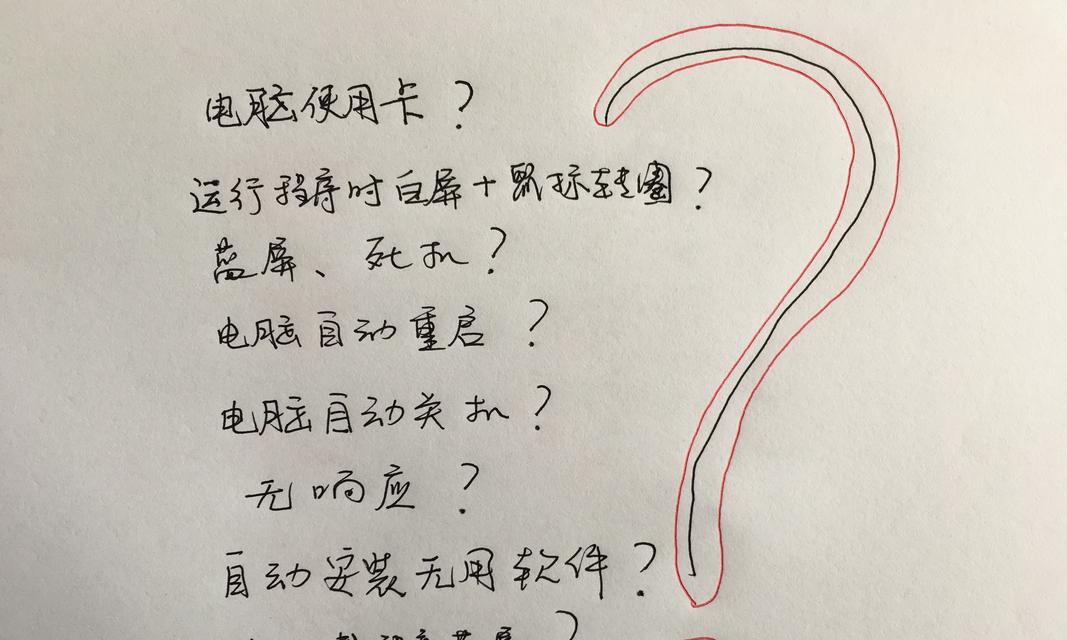 电脑使用卡？
运行程序时白屏+鼠标转圈？
蓝屏、死机？
电脑自动重启？
电脑自动关机？
无响应？
自动安装无用软件？